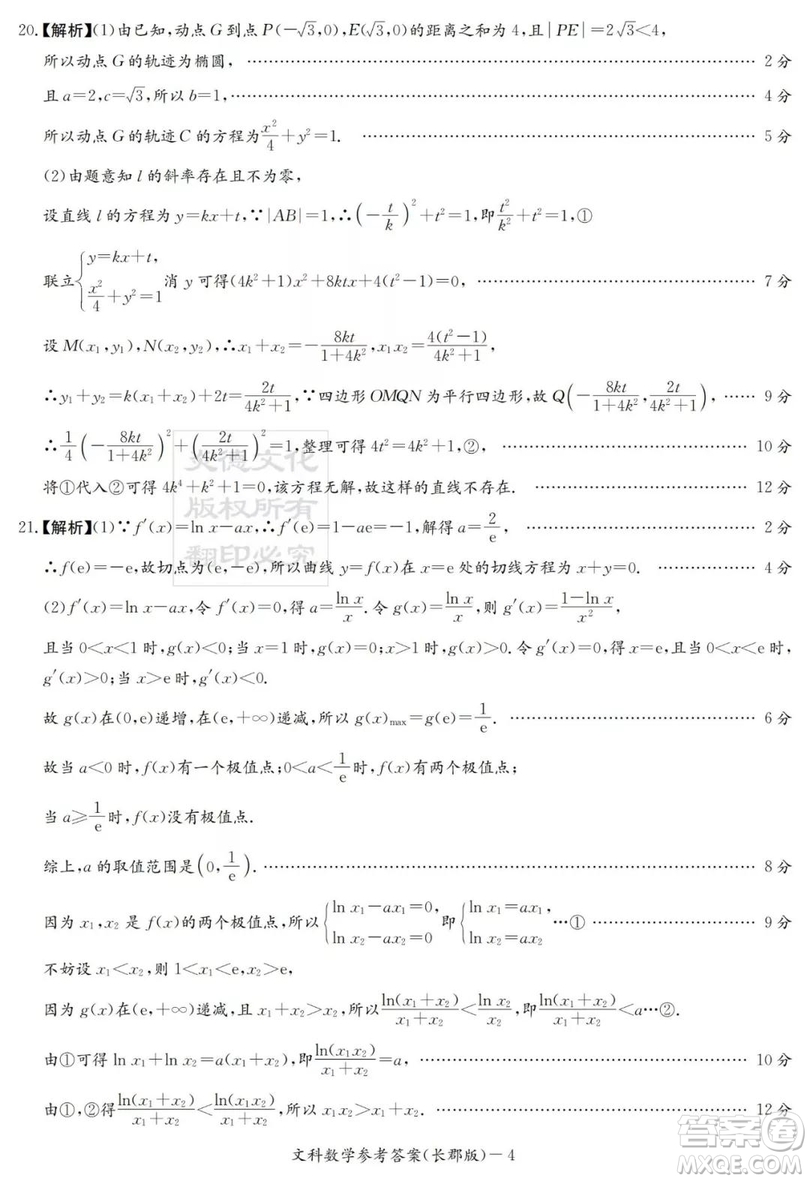 20.【解析】(1)由已知,动点 G 到点 P(−√3,0),E(√3,0)的距离之和为 4,且|PE|=2√3<4,
所以动点 G 的轨迹为椭圆, …… 2 分
且 a=2,c=√3,所以 b=1, …… 4 分
所以动点 G 的轨迹 C 的方程为 x²/4+y²=1. …… 5 分
(2)由题意知 l 的斜率存在且不为零,
设直线 l 的方程为 y=kx+t,∵|AB|=1,∴(−t/k)²+t²=1,即 t²/k²+t²=1,①
联立{y=kx+t, x²/4+y²=1 消 y 可得(4k²+1)x²+8ktx+4(t²−1)=0, …… 7 分
设 M(x₁,y₁),N(x₂,y₂),∴x₁+x₂=−8kt/(1+4k²),x₁x₂=4(t²−1)/(4k²+1),
∴y₁+y₂=k(x₁+x₂)+2t=2t/(4k²+1),∵四边形 OMQN 为平行四边形,故 Q(−8kt/(1+4k²),2t/(4k²+1)), …… 9 分
∴1/4(−8kt/(1+4k²))²+(2t/(4k²+1))²=1,整理可得 4t²=4k²+1,②, …… 10 分
将①代入②可得 4k⁴+k²+1=0,该方程无解,故这样的直线不存在. …… 12 分
21.【解析】(1)∵f′(x)=ln x−ax,∴f′(e)=1−ae=−1,解得 a=2/e, …… 2 分
∴f(e)=−e,故切点为(e,−e),所以曲线 y=f(x)在 x=e 处的切线方程为 x+y=0. …… 4 分
(2)f′(x)=ln x−ax,令 f′(x)=0,得 a=ln x/x.令 g(x)=ln x/x,则 g′(x)=(1−ln x)/x²,
且当 0<x<1 时,g(x)<0;当 x=1 时,g(x)=0;x>1 时,g(x)>0.令 g′(x)=0,得 x=e,且当 0<x<e 时,
g′(x)>0;当 x>e 时,g′(x)<0.
故 g(x)在(0,e)递增,在(e,+∞)递减,所以 g(x)max=g(e)=1/e. …… 6 分
故当 a<0 时,f(x)有一个极值点;0<a<1/e 时,f(x)有两个极值点;
当 a⩾1/e 时,f(x)没有极值点.
综上,a 的取值范围是(0,1/e). …… 8 分
因为 x₁,x₂ 是 f(x)的两个极值点,所以{ln x₁−ax₁=0, ln x₂−ax₂=0 即{ln x₁=ax₁, ln x₂=ax₂ …① …… 9 分
不妨设 x₁<x₂,则 1<x₁<e,x₂>e,
因为 g(x)在(e,+∞)递减,且 x₁+x₂>x₂,所以 ln(x₁+x₂)/(x₁+x₂)<ln x₂/x₂,即 ln(x₁+x₂)/(x₁+x₂)<a…②.
由①可得 ln x₁+ln x₂=a(x₁+x₂),即 ln(x₁x₂)/(x₁+x₂)=a, …… 10 分
由①,②得 ln(x₁+x₂)/(x₁+x₂)<ln(x₁x₂)/(x₁+x₂),所以 x₁+x₂<x₁x₂. …… 12 分
文科数学参考答案(长郡版)−4
炎德文化
版权所有
翻印必究
答案圈
MXQE.COM